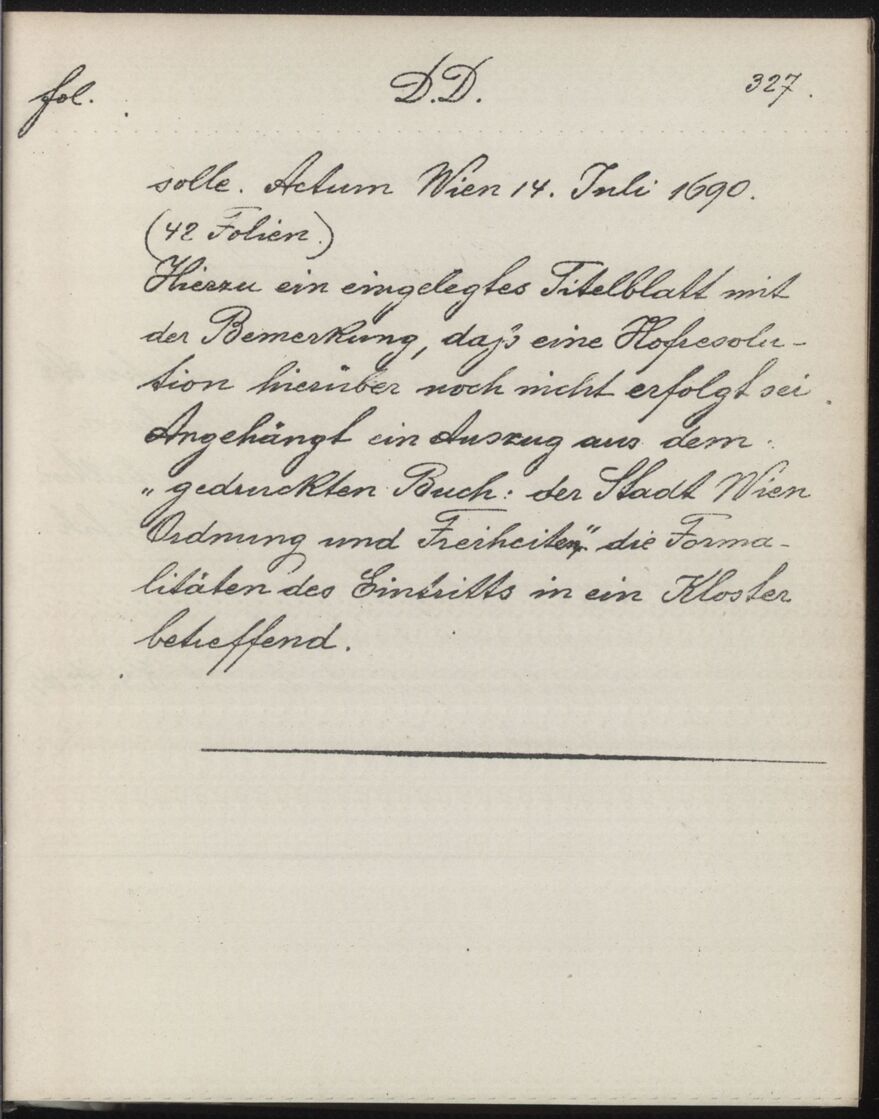 fol. D.D. 327.
solle. Actum Wien 14. Juli 1690.
(42 Folien.)
Hierzu ein eingelegtes Titelblatt mit
der Bemerkung, daß eine Hofresolu-
tion hierüber noch nicht erfolgt sei.
Angehängt ein Auszug aus dem
"gedruckten Buch: der Stadt Wien
Ordnung und Freiheiten" die Forma-
litäten des Eintritts in ein Kloster
betreffend.